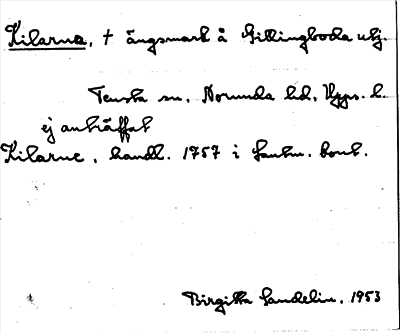 Kilarna, † ängsmark å Gillingboda utj.
Tensta sn, Norunda hd, Upps. l.
ej anträffat
Kilarne, handl. 1757 i Lantm. kont.
Birgitta Sundelin, 1953